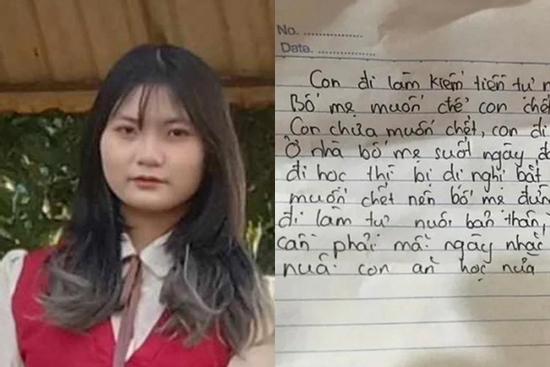 No. ..................
Date. ..................
Con đi làm kiếm tiền tự n
Bố mẹ muốn để con chế
Con chưa muốn chết, con đi
Ở nhà bố mẹ suốt ngày đ
đi học thì bị dị nghị bắt
muốn chết nên bố mẹ đừn
đi làm tự nuôi bản thân,
cần phải mỗi ngày nhắc
nuôi con ăn học nữa